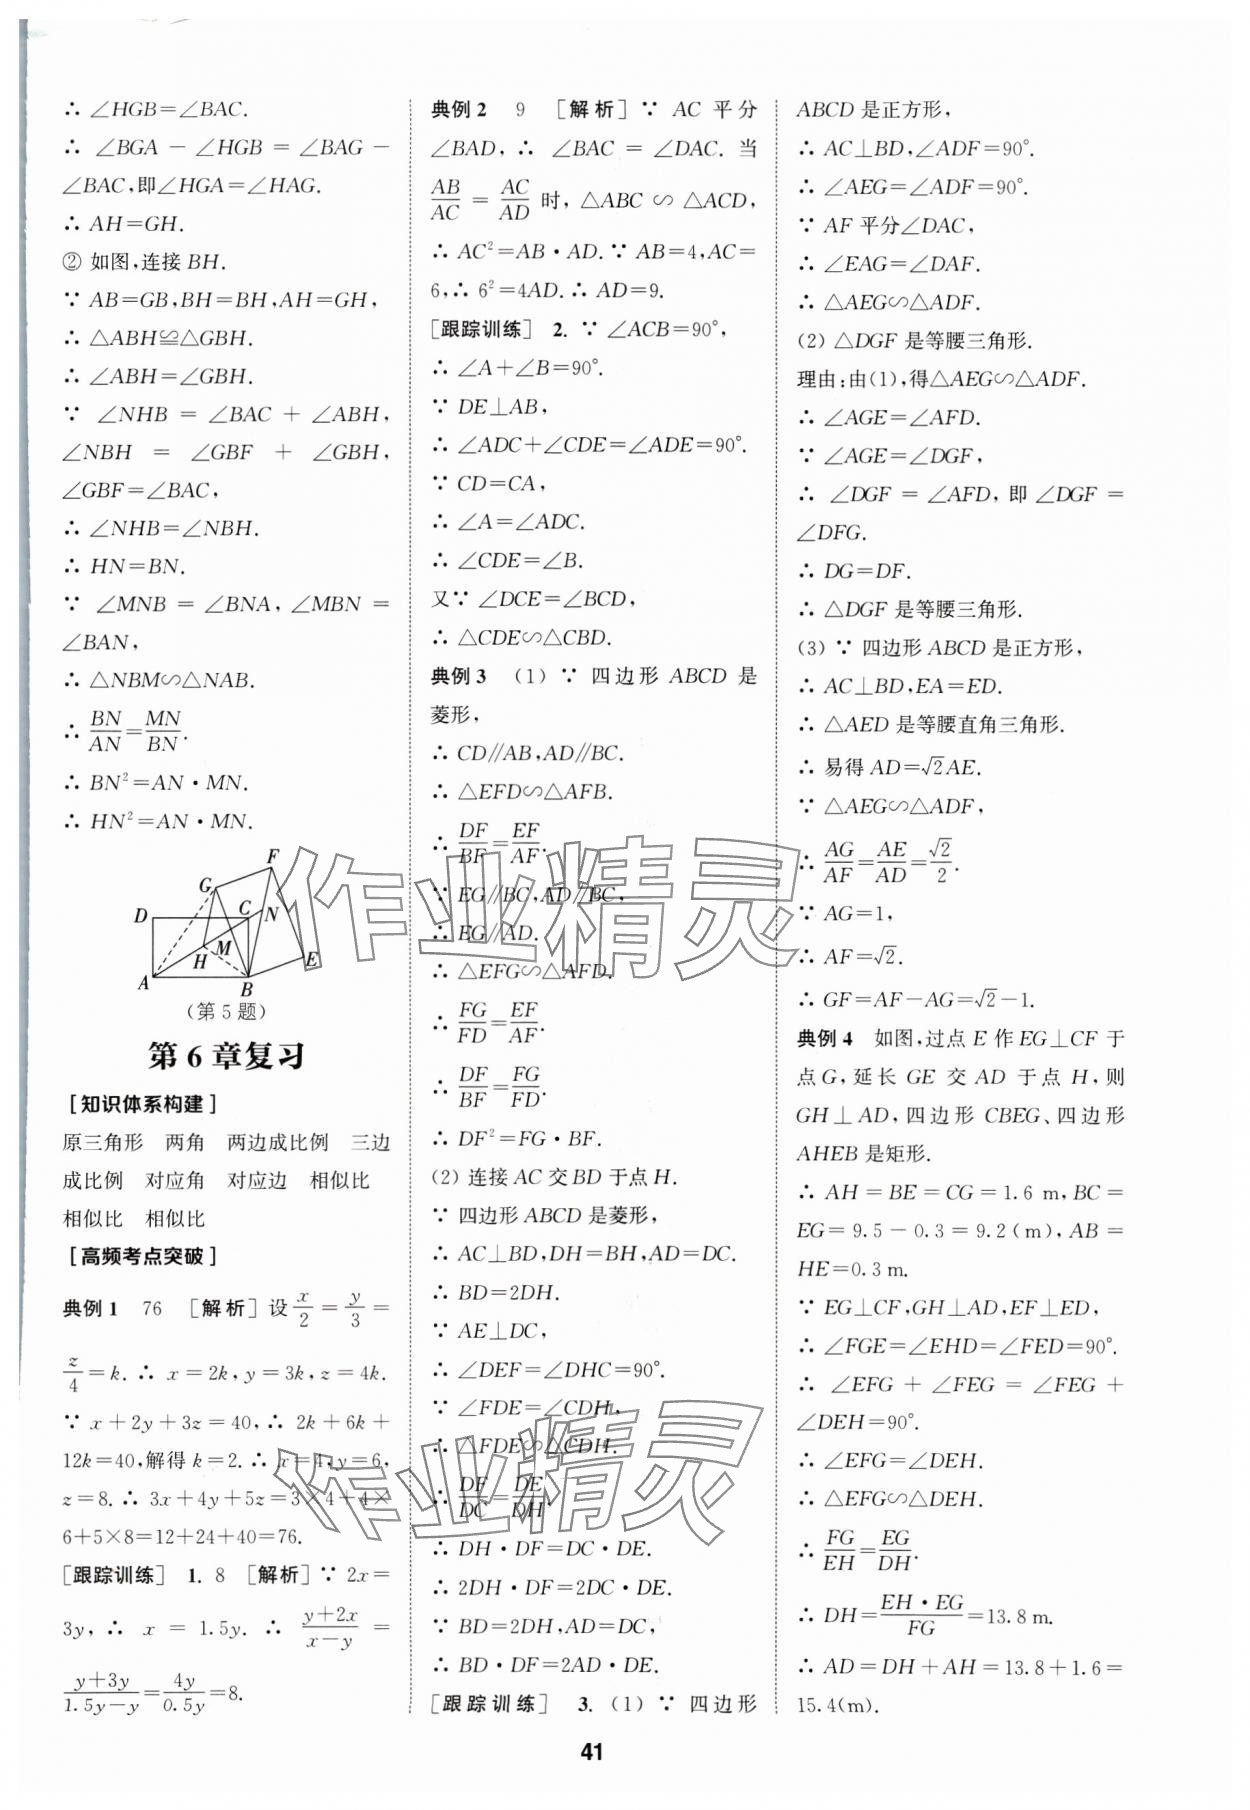 ∴ ∠HGB=∠BAC.
∴ ∠BGA－∠HGB＝∠BAG－
∠BAC,即∠HGA=∠HAG.
∴ AH=GH.
② 如图,连接BH.
∵ AB=GB,BH=BH,AH=GH,
∴ △ABH≌△GBH.
∴ ∠ABH=∠GBH.
∵ ∠NHB = ∠BAC + ∠ABH,
∠NBH = ∠GBF + ∠GBH,
∠GBF=∠BAC,
∴ ∠NHB=∠NBH.
∴ HN=BN.
∵ ∠MNB = ∠BNA, ∠MBN =
∠BAN,
∴ △NBM∽△NAB.
∴ BN/AN=MN/BN.
∴ BN²=AN·MN.
∴ HN²=AN·MN.
F
G
D
C
N
M
H
E
A
B
(第5题)
第6章复习
[知识体系构建]
原三角形 两角 两边成比例 三边
成比例 对应角 对应边 相似比
相似比 相似比
[高频考点突破]
典例1 76 [解析] 设x/2=y/3=
z/4=k.∴ x=2k,y=3k,z=4k.
∵ x+2y+3z=40,∴ 2k+6k+
12k=40,解得k=2.∴ x=4,y=6,
z=8.∴ 3x+4y+5z=3×4+4×
6+5×8=12+24+40=76.
[跟踪训练] 1. 8 [解析] ∵ 2x=
3y,∴ x = 1.5y.∴ (y+2x)/(x-y) =
(y+3y)/(1.5y-y)=4y/0.5y=8.
典例2 9 [解析] ∵ AC平分
∠BAD,∴ ∠BAC=∠DAC.当
AB/AC = AC/AD 时,△ABC∽△ACD,
∴ AC²=AB·AD.∵ AB=4,AC=
6,∴ 6²=4AD.∴ AD=9.
[跟踪训练] 2. ∵ ∠ACB=90°,
∴ ∠A+∠B=90°.
∵ DE⊥AB,
∴ ∠ADC+∠CDE=∠ADE=90°.
∵ CD=CA,
∴ ∠A=∠ADC.
∴ ∠CDE=∠B.
又∵ ∠DCE=∠BCD,
∴ △CDE∽△CBD.
典例3 (1) ∵ 四边形ABCD是
菱形,
∴ CD∥AB,AD∥BC.
∴ △EFD∽△AFB.
∴ DF/BF=EF/AF.
∵ EG∥BC,AD∥BC,
∴ EG∥AD.
∴ △EFG∽△AFD.
∴ FG/FD=EF/AF.
∴ DF/BF=FG/FD.
∴ DF²=FG·BF.
(2) 连接AC交BD于点H.
∵ 四边形ABCD是菱形,
∴ AC⊥BD,DH=BH,AD=DC.
∴ BD=2DH.
∵ AE⊥DC,
∴ ∠DEF=∠DHC=90°.
∵ ∠FDE=∠CDH,
∴ △FDE∽△CDH.
∴ DF/DC=DE/DH.
∴ DH·DF=DC·DE.
∴ 2DH·DF=2DC·DE.
∵ BD=2DH,AD=DC,
∴ BD·DF=2AD·DE.
[跟踪训练] 3. (1) ∵ 四边形
ABCD是正方形,
∴ AC⊥BD,∠ADF=90°.
∴ ∠AEG=∠ADF=90°.
∵ AF平分∠DAC,
∴ ∠EAG=∠DAF.
∴ △AEG∽△ADF.
(2) △DGF是等腰三角形.
理由:由(1),得△AEG∽△ADF.
∴ ∠AGE=∠AFD.
∵ ∠AGE=∠DGF,
∴ ∠DGF = ∠AFD,即 ∠DGF =
∠DFG.
∴ DG=DF.
∴ △DGF是等腰三角形.
(3) ∵ 四边形ABCD是正方形,
∴ AC⊥BD,EA=ED.
∴ △AED是等腰直角三角形.
∴ 易得AD=√2AE.
∵ △AEG∽△ADF,
∴ AG/AF=AE/AD=√2/2.
∵ AG=1,
∴ AF=√2.
∴ GF=AF-AG=√2-1.
典例4 如图,过点E作EG⊥CF于
点G,延长GE交AD于点H,则
GH⊥AD,四边形CBEG、四边形
AHEB是矩形.
∴ AH=BE=CG=1.6 m,BC=
EG=9.5-0.3=9.2(m),AB=
HE=0.3 m.
∵ EG⊥CF,GH⊥AD,EF⊥ED,
∴ ∠FGE=∠EHD=∠FED=90°.
∴ ∠EFG + ∠FEG = ∠FEG +
∠DEH=90°.
∴ ∠EFG=∠DEH.
∴ △EFG∽△DEH.
∴ FG/EH=EG/DH.
∴ DH=EH·EG/FG=13.8 m.
∴ AD=DH+AH=13.8+1.6=
15.4(m).
作业精灵
作业精灵
41